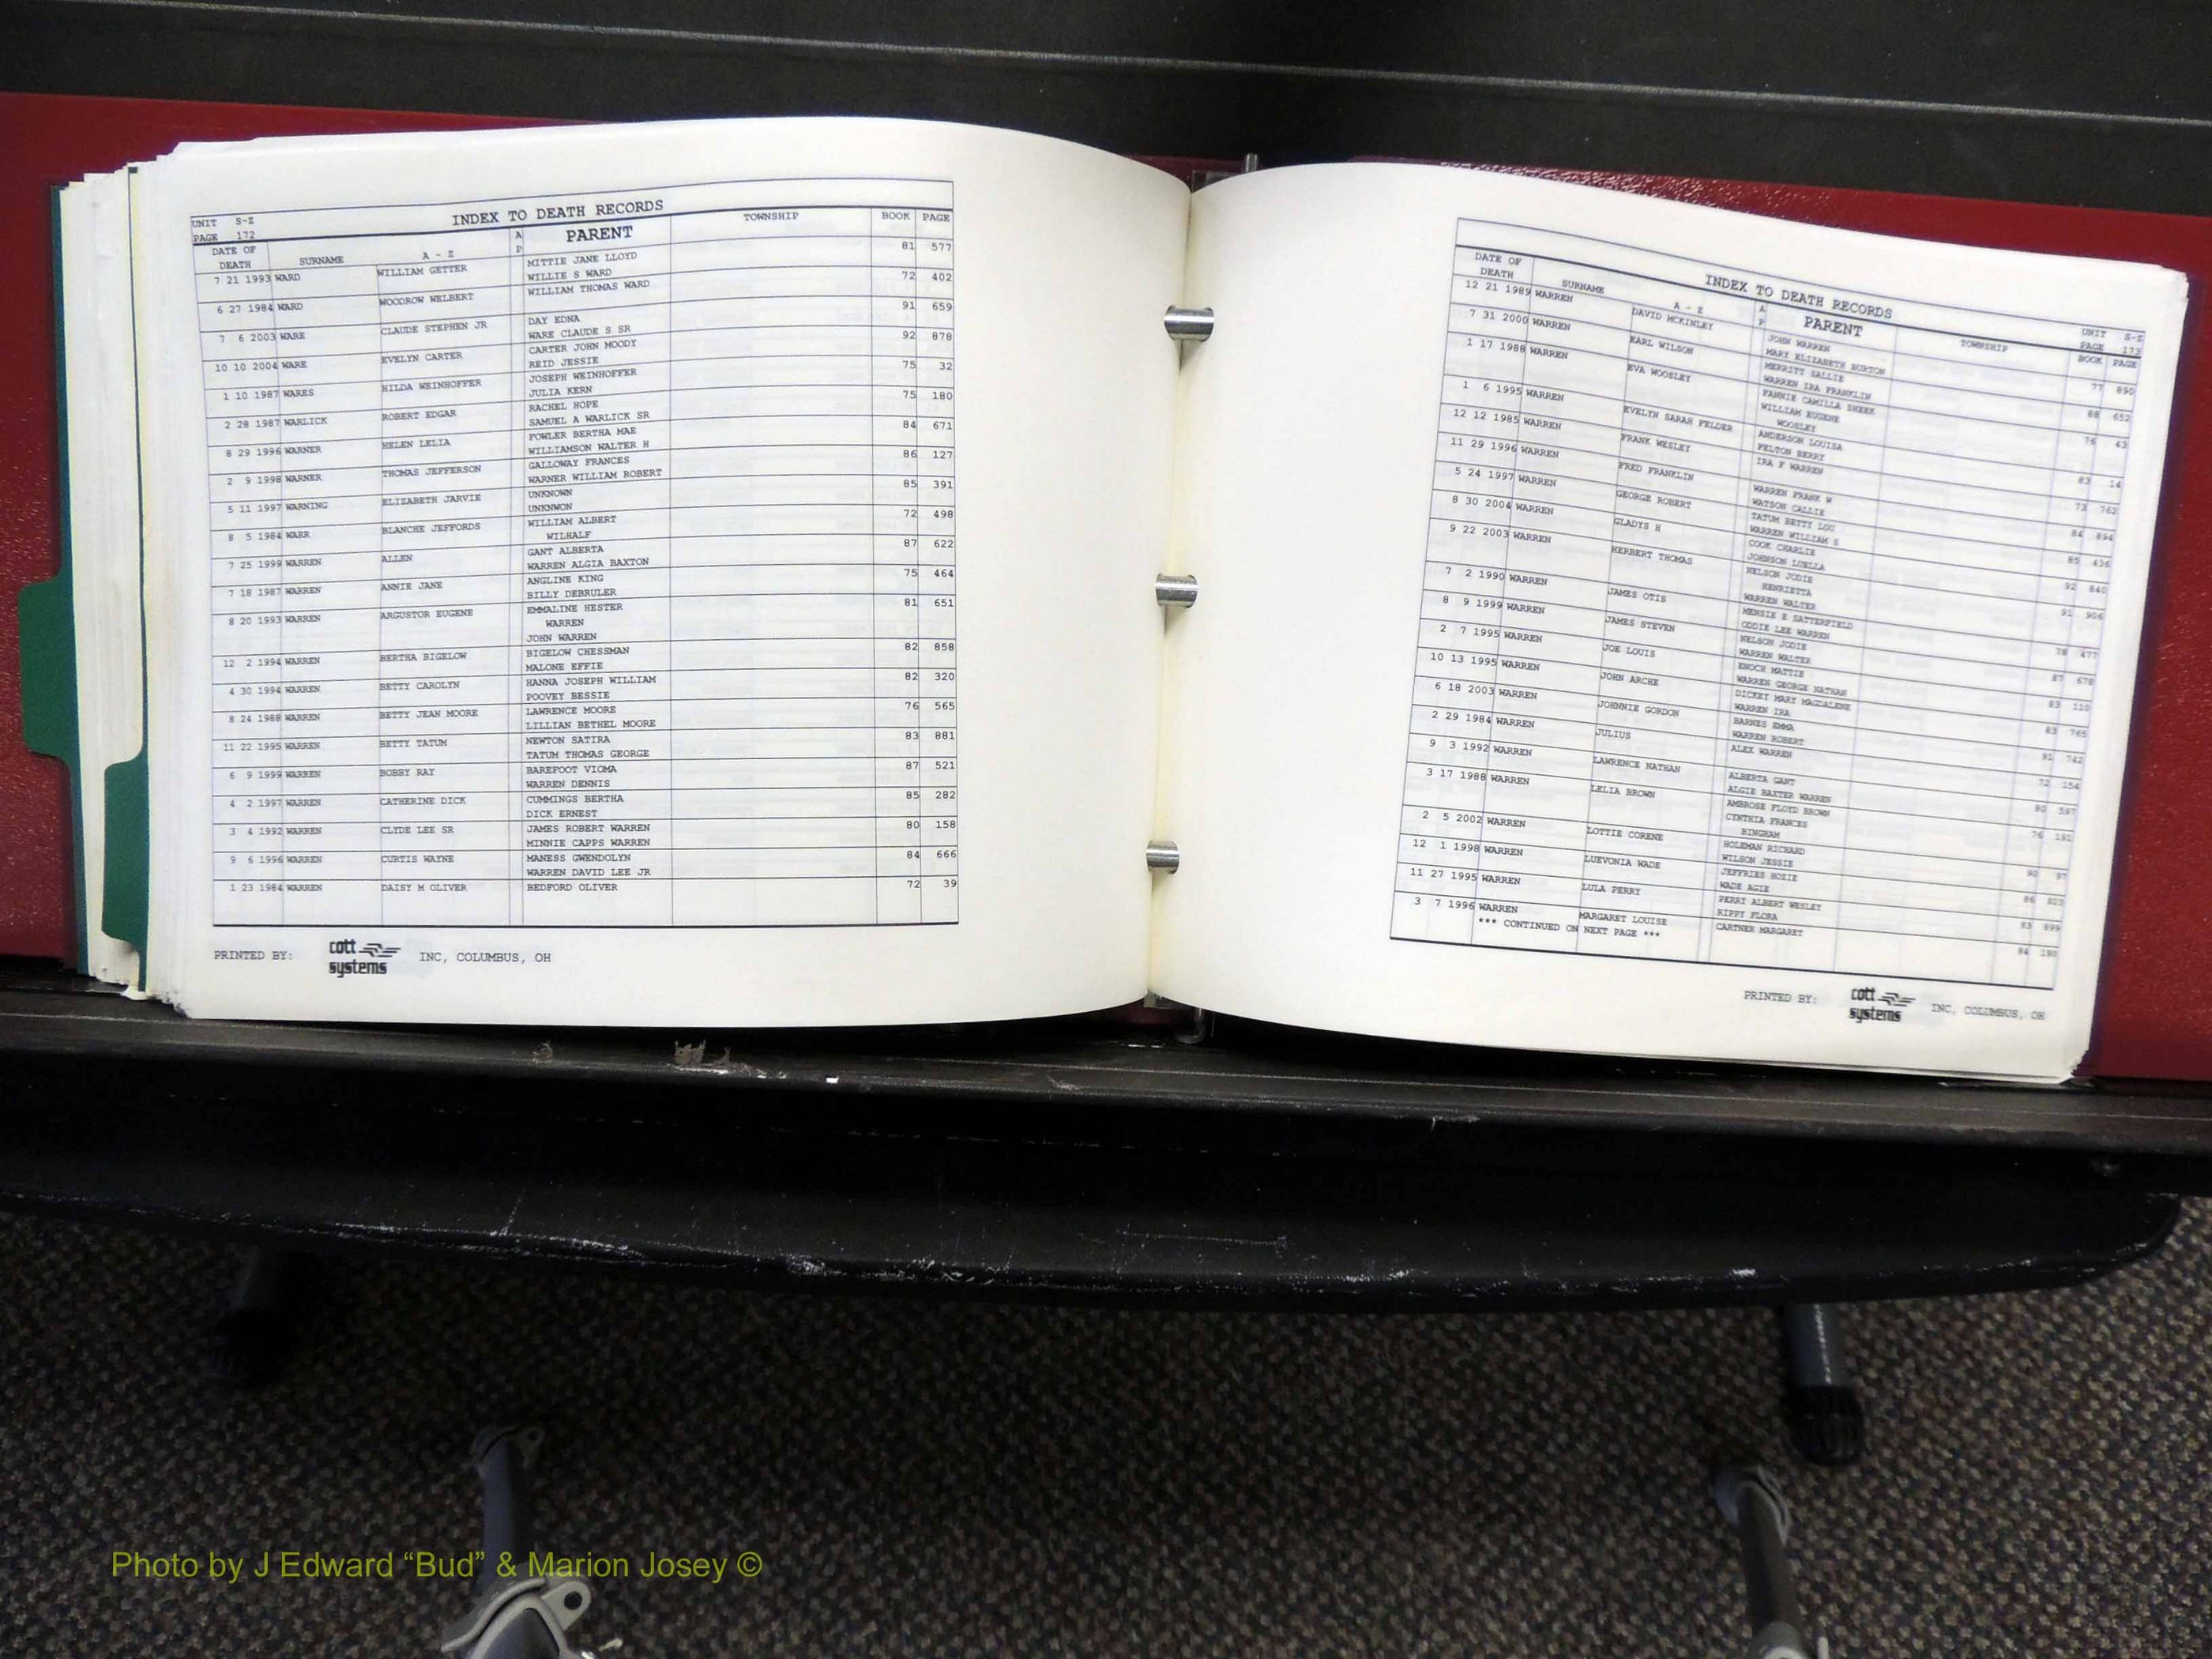 UNIT S-Z
PAGE 172
INDEX TO DEATH RECORDS
DATE OF DEATH SURNAME A - Z A P PARENT TOWNSHIP BOOK PAGE
7 21 1993 WARD WILLIAM GETTER MITTIE JANE LLOYD 81 577
WILLIE S WARD
6 27 1984 WARD WOODROW WELBERT WILLIAM THOMAS WARD 72 402
7 6 2003 WARE CLAUDE STEPHEN JR DAY EDNA 91 659
WARE CLAUDE S SR
10 10 2004 WARE EVELYN CARTER CARTER JOHN MOODY 92 878
REID JESSIE
1 10 1987 WARES HILDA WEINHOFFER JOSEPH WEINHOFFER 75 32
JULIA KERN
2 28 1987 WARLICK ROBERT EDGAR RACHEL HOPE 75 180
SAMUEL A WARLICK SR
8 29 1996 WARNER HELEN LELIA FOWLER BERTHA MAE 84 671
WILLIAMSON WALTER H
2 9 1998 WARNER THOMAS JEFFERSON GALLOWAY FRANCES 86 127
WARNER WILLIAM ROBERT
5 11 1997 WARNING ELIZABETH JARVIE UNKNOWN 85 391
UNKNWON
8 5 1984 WARR BLANCHE JEFFORDS WILLIAM ALBERT 72 498
WILHALF
7 25 1999 WARREN ALLEN GANT ALBERTA 87 622
WARREN ALGIA BAXTON
7 18 1987 WARREN ANNIE JANE ANGLINE KING 75 464
BILLY DEBRULER
8 20 1993 WARREN ARGUSTOR EUGENE EMMALINE HESTER 81 651
WARREN
JOHN WARREN
12 2 1994 WARREN BERTHA BIGELOW BIGELOW CHESSMAN 82 858
MALONE EFFIE
4 30 1994 WARREN BETTY CAROLYN HANNA JOSEPH WILLIAM 82 320
POOVEY BESSIE
8 24 1988 WARREN BETTY JEAN MOORE LAWRENCE MOORE 76 565
LILLIAN BETHEL MOORE
11 22 1995 WARREN BETTY TATUM NEWTON SATIRA 83 881
TATUM THOMAS GEORGE
6 9 1999 WARREN BOBBY RAY BAREFOOT VIOMA 87 521
WARREN DENNIS
4 2 1997 WARREN CATHERINE DICK CUMMINGS BERTHA 85 282
DICK ERNEST
3 4 1992 WARREN CLYDE LEE SR JAMES ROBERT WARREN 80 158
MINNIE CAPPS WARREN
9 6 1996 WARREN CURTIS WAYNE MANESS GWENDOLYN 84 666
WARREN DAVID LEE JR
1 23 1984 WARREN DAISY M OLIVER BEDFORD OLIVER 72 39
PRINTED BY: cott systems INC, COLUMBUS, OH
INDEX TO DEATH RECORDS
UNIT S-Z
PAGE 173
DATE OF DEATH SURNAME A - Z A P PARENT TOWNSHIP BOOK PAGE
12 21 1989 WARREN DAVID MCKINLEY JOHN WARREN 77 890
MARY ELIZABETH BURTON
7 31 2000 WARREN EARL WILSON MERRITT SALLIE 88 652
WARREN IRA FRANKLIN
1 17 1988 WARREN EVA WOOSLEY FANNIE CAMILLA SHEEK 76 43
WILLIAM EUGENE
WOOSLEY
1 6 1995 WARREN EVELYN SARAH FELDER ANDERSON LOUISA 83 14
FELTON BERRY
12 12 1985 WARREN FRANK WESLEY IRA F WARREN 73 762
11 29 1996 WARREN FRED FRANKLIN WARREN FRANK W 84 894
WATSON CALLIE
5 24 1997 WARREN GEORGE ROBERT TATUM BETTY LOU 85 436
WARREN WILLIAM S
8 30 2004 WARREN GLADYS H COOK CHARLIE 92 840
JOHNSON LUELLA
9 22 2003 WARREN HERBERT THOMAS NELSON JODIE 91 906
HENRIETTA
WARREN WALTER
7 2 1990 WARREN JAMES OTIS MENSIE E SATTERFIELD 78 477
ODDIE LEE WARREN
8 9 1999 WARREN JAMES STEVEN NELSON JODIE 87 678
WARREN WALTER
2 7 1995 WARREN JOE LOUIS ENOCH MATTIE 83 110
WARREN GEORGE NATHAN
10 13 1995 WARREN JOHN ARCHE DICKEY MARY MAGDALENE 83 765
WARREN IRA
6 18 2003 WARREN JOHNNIE GORDON BARNES EMMA 91 742
WARREN ROBERT
2 29 1984 WARREN JULIUS ALEX WARREN 72 154
9 3 1992 WARREN LAWRENCE NATHAN ALBERTA GANT 80 597
ALGIE BAXTER WARREN
3 17 1988 WARREN LELIA BROWN AMBROSE FLOYD BROWN 76 191
CYNTHIA FRANCES
BINGHAM
2 5 2002 WARREN LOTTIE CORENE HOLEMAN RICHARD 90 97
WILSON JESSIE
12 1 1998 WARREN LUEVONIA WADE JEFFRIES HOZIE 86 923
WADE AGIE
11 27 1995 WARREN LULA PERRY PERRY ALBERT WESLEY 83 899
RIPPY FLORA
3 7 1996 WARREN MARGARET LOUISE CARTNER MARGARET 84 190
*** CONTINUED ON NEXT PAGE ***
PRINTED BY: cott systems INC, COLUMBUS, OH
Photo by J Edward “Bud” & Marion Josey ©